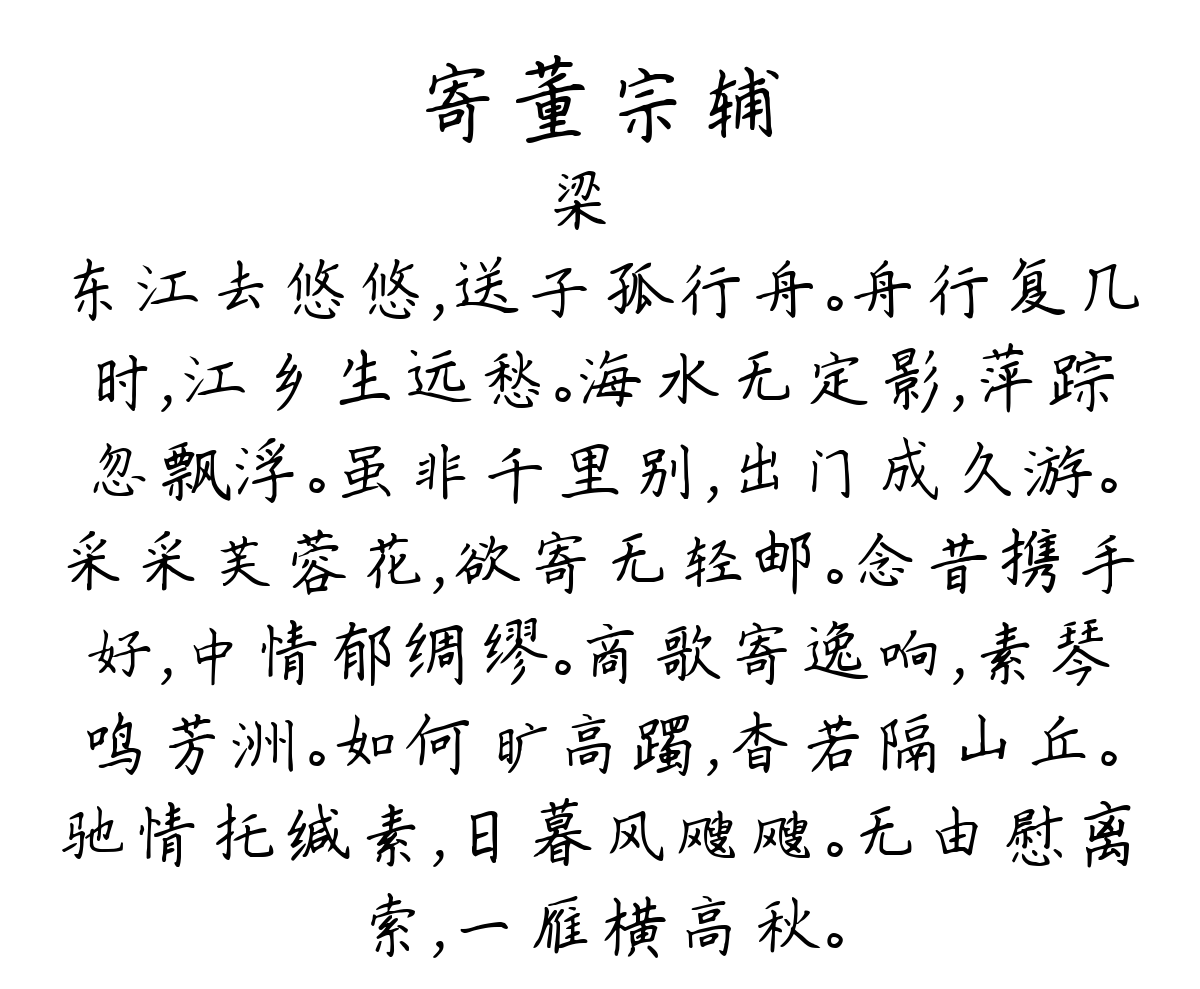 寄董宗辅
梁
东江去悠悠,送子孤行舟。舟行复几
时,江乡生远愁。海水无定影,萍踪
忽飘浮。虽非千里别,出门成久游。
采采芙蓉花,欲寄无轻邮。念昔携手
好,中情郁绸缪。商歌寄逸响,素琴
鸣芳洲。如何旷高躅,杳若隔山丘。
驰情托缄素,日暮风飕飕。无由慰离
索,一雁横高秋。